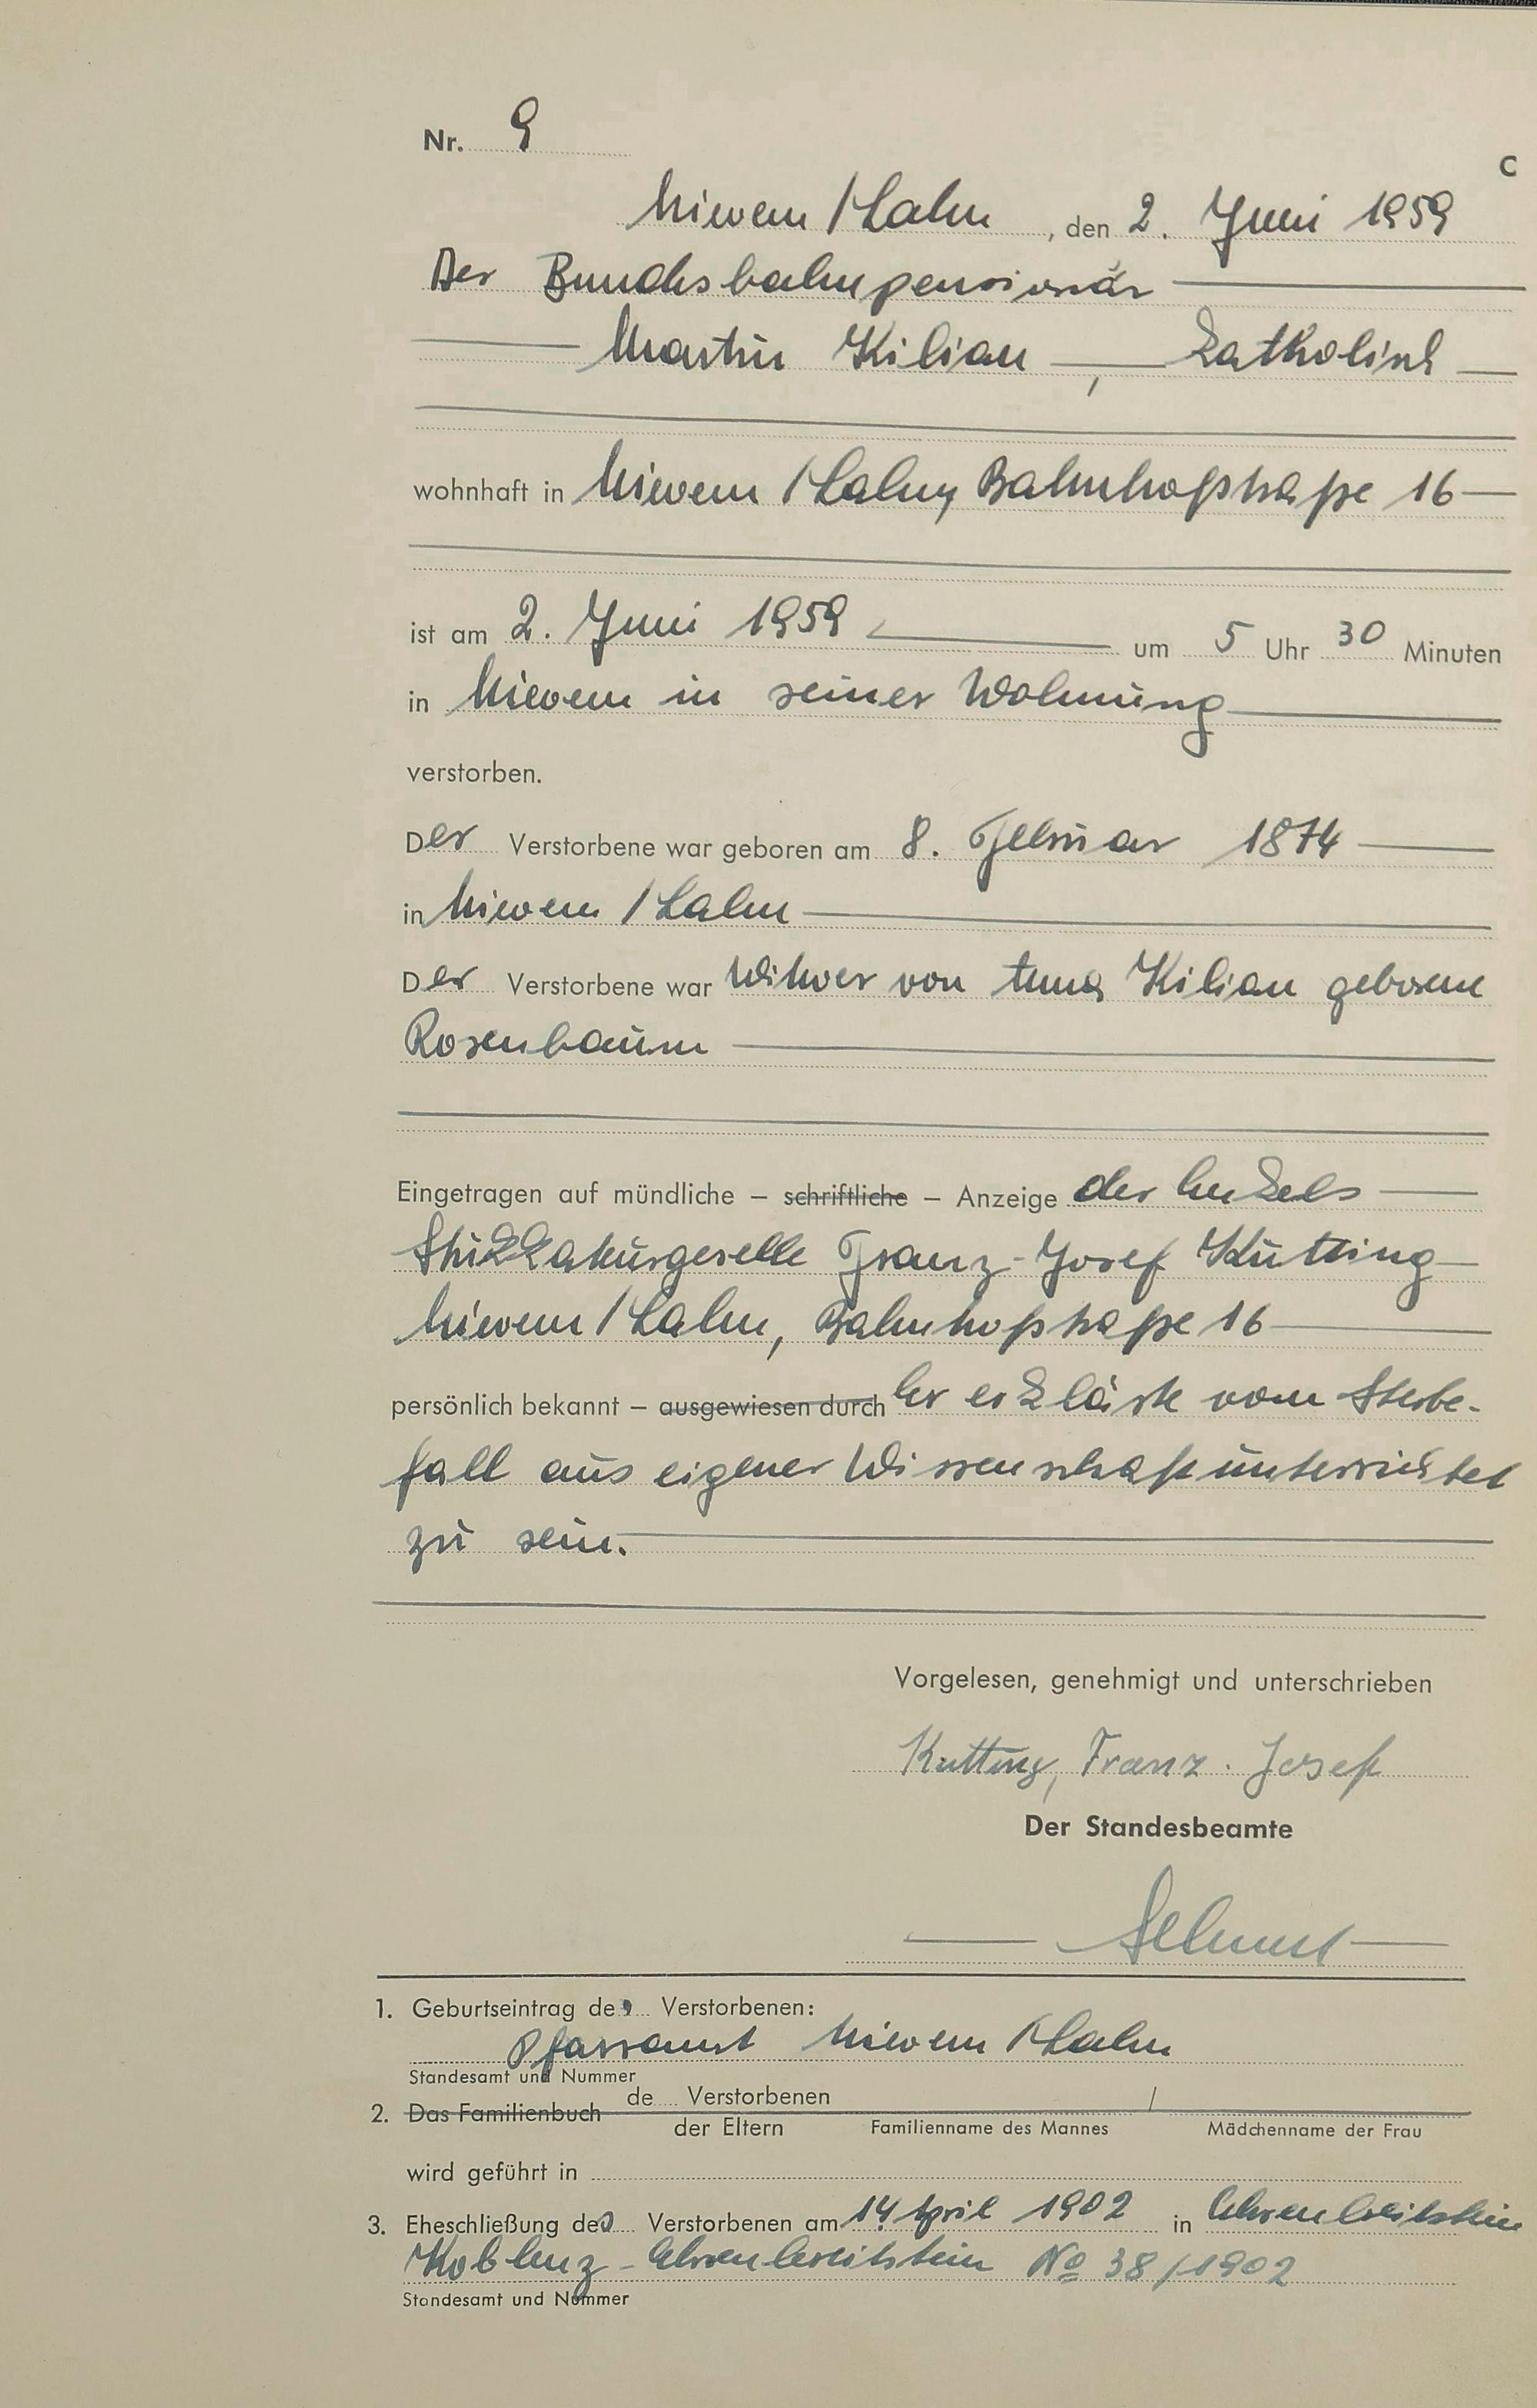 Nr. 9
C
Nievern / Lahn, den 2. Juni 1959
Der Bundesbahnpensionär
Martin Kilian, katholisch
wohnhaft in Nievern / Lahn, Bahnhofstraße 16
ist am 2. Juni 1959 um 5 Uhr 30 Minuten
in Nievern in seiner Wohnung
verstorben.
Der Verstorbene war geboren am 8. Februar 1874
in Nievern / Lahn
Der Verstorbene war Witwer von Anna Kilian geborene
Rosenbaum
Eingetragen auf mündliche – schriftliche – Anzeige des Enkels
Stukkaturgeselle Franz-Josef Kutting
Nievern / Lahn, Bahnhofstraße 16
persönlich bekannt – ausgewiesen durch Er erklärte vom Sterbe-
fall aus eigener Wissenschaft unterrichtet
zu sein.
Vorgelesen, genehmigt und unterschrieben
Kutting, Franz-Josef
Der Standesbeamte
1. Geburtseintrag des Verstorbenen:
Pfarramt Nievern / Lahn
Standesamt und Nummer
2. Das Familienbuch de Verstorbenen
der Eltern Familienname des Mannes Mädchenname der Frau
wird geführt in
3. Eheschließung des Verstorbenen am 14. April 1902 in Ehrenbreitstein
Koblenz-Ehrenbreitstein No 38/1902
Standesamt und Nummer